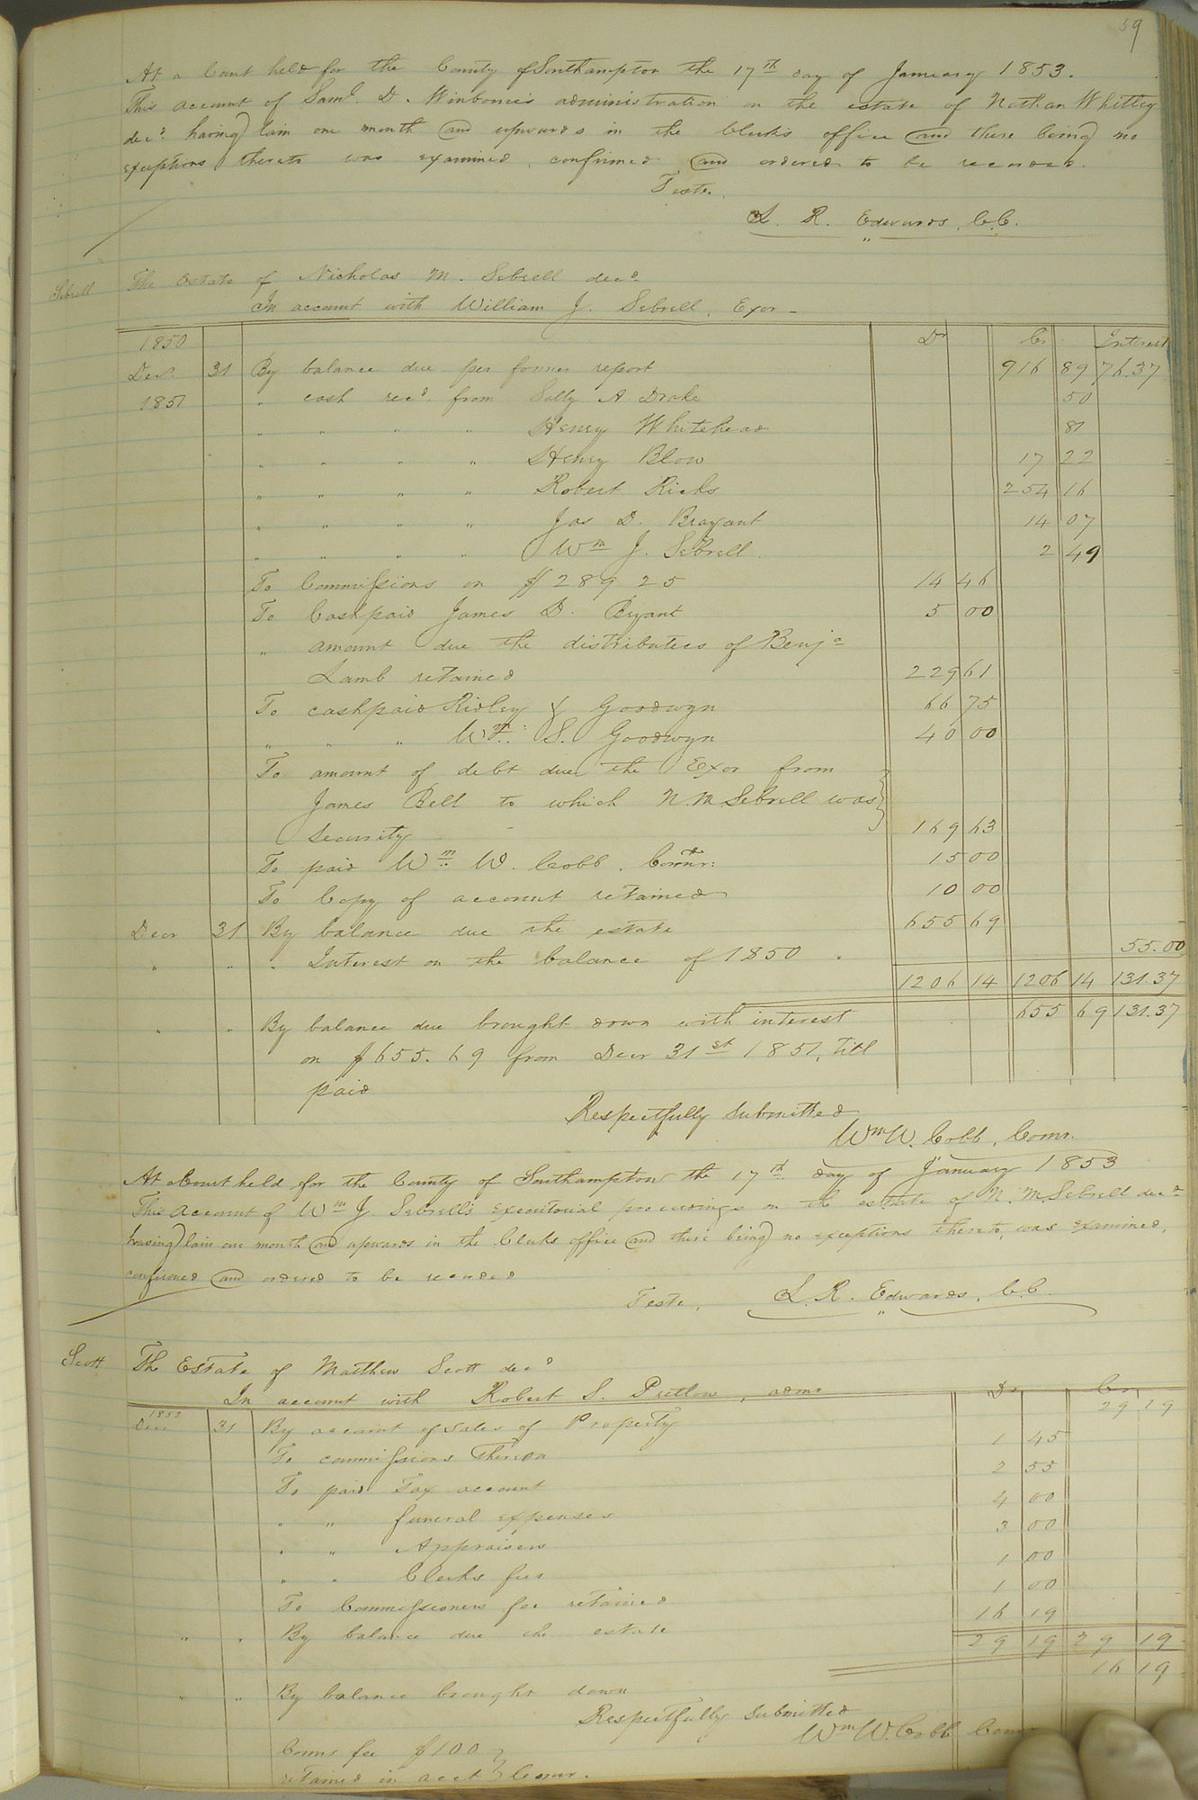 59
At a Court held for the County of Southampton the 17th day of January 1853.
This account of Saml. D. Winborne's administration on the estate of Nathan Whitley
decd having lain one month and upwards in the Clerk's office and there being no
exceptions thereto was examined, confirmed and ordered to be recorded.
Teste,
L. R. Edwards, C.C.
Sebrell The Estate of Nicholas M. Sebrell decd
In account with William J. Sebrell, Exor
1850 Dr Cr Interest
Decr 31 By balance due per former report 916 89 76.37
1851 " cash recd from Sally A Drake 50
" " " " Henry Whitehead 81
" " " " Henry Blow 17 22
" " " " Robert Ricks 254 16
" " " " Jas D. Brayant 14 07
" " " " Wm J. Sebrell 2 49
To Commissions on $289 25 14 46
To Cash paid James D. Bryant 5 00
" amount due the distributees of Benja
Lamb retained 229 61
To cash paid Ridley & Goodwyn 66 75
" " " Wm. S. Goodwyn 40 00
To amount of debt due the Exor from
James Bell to which N. M Sebrell was
security 169 63
To paid Wm W. Cobb, Comr. 15 00
To Copy of account retained 10 00
Decr 31 By balance due the estate 655 69
" " " Interest on the balance of 1850 55.00
1206 14 1206 14 131.37
" " By balance due brought down with interest 655 69 131.37
on $655.69 from Decr 31st 1851, till
paid
Respectfully submitted
Wm W. Cobb, Comr.
At a Court held for the County of Southampton the 17th day of January 1853
This Account of Wm J Sebrell's executorial proceedings on the estate of N. M. Sebrell decd
having lain one month and upwards in the Clerks office and there being no exceptions thereto, was examined,
confirmed and ordered to be recorded
Teste, L. R. Edwards, C.C.
Scott The Estate of Matthew Scott decd
In account with Robert S. Pretlow, admr Dr Cr
1852
Decr 31 By account of sales of Property 29 19
To commissions Thereon 1 45
To paid Tax account 2 55
" " funeral expenses 4 00
" " Appraisers 3 00
" " Clerks fees 1 00
To Commissioners fee retained 1 00
" " By balance due the estate 16 19
29 19 29 19
" " By balance brought down 16 19
Respectfully submitted
Wm W. Cobb Comr
Comrs fee $1.00
retained in acct } Comr.